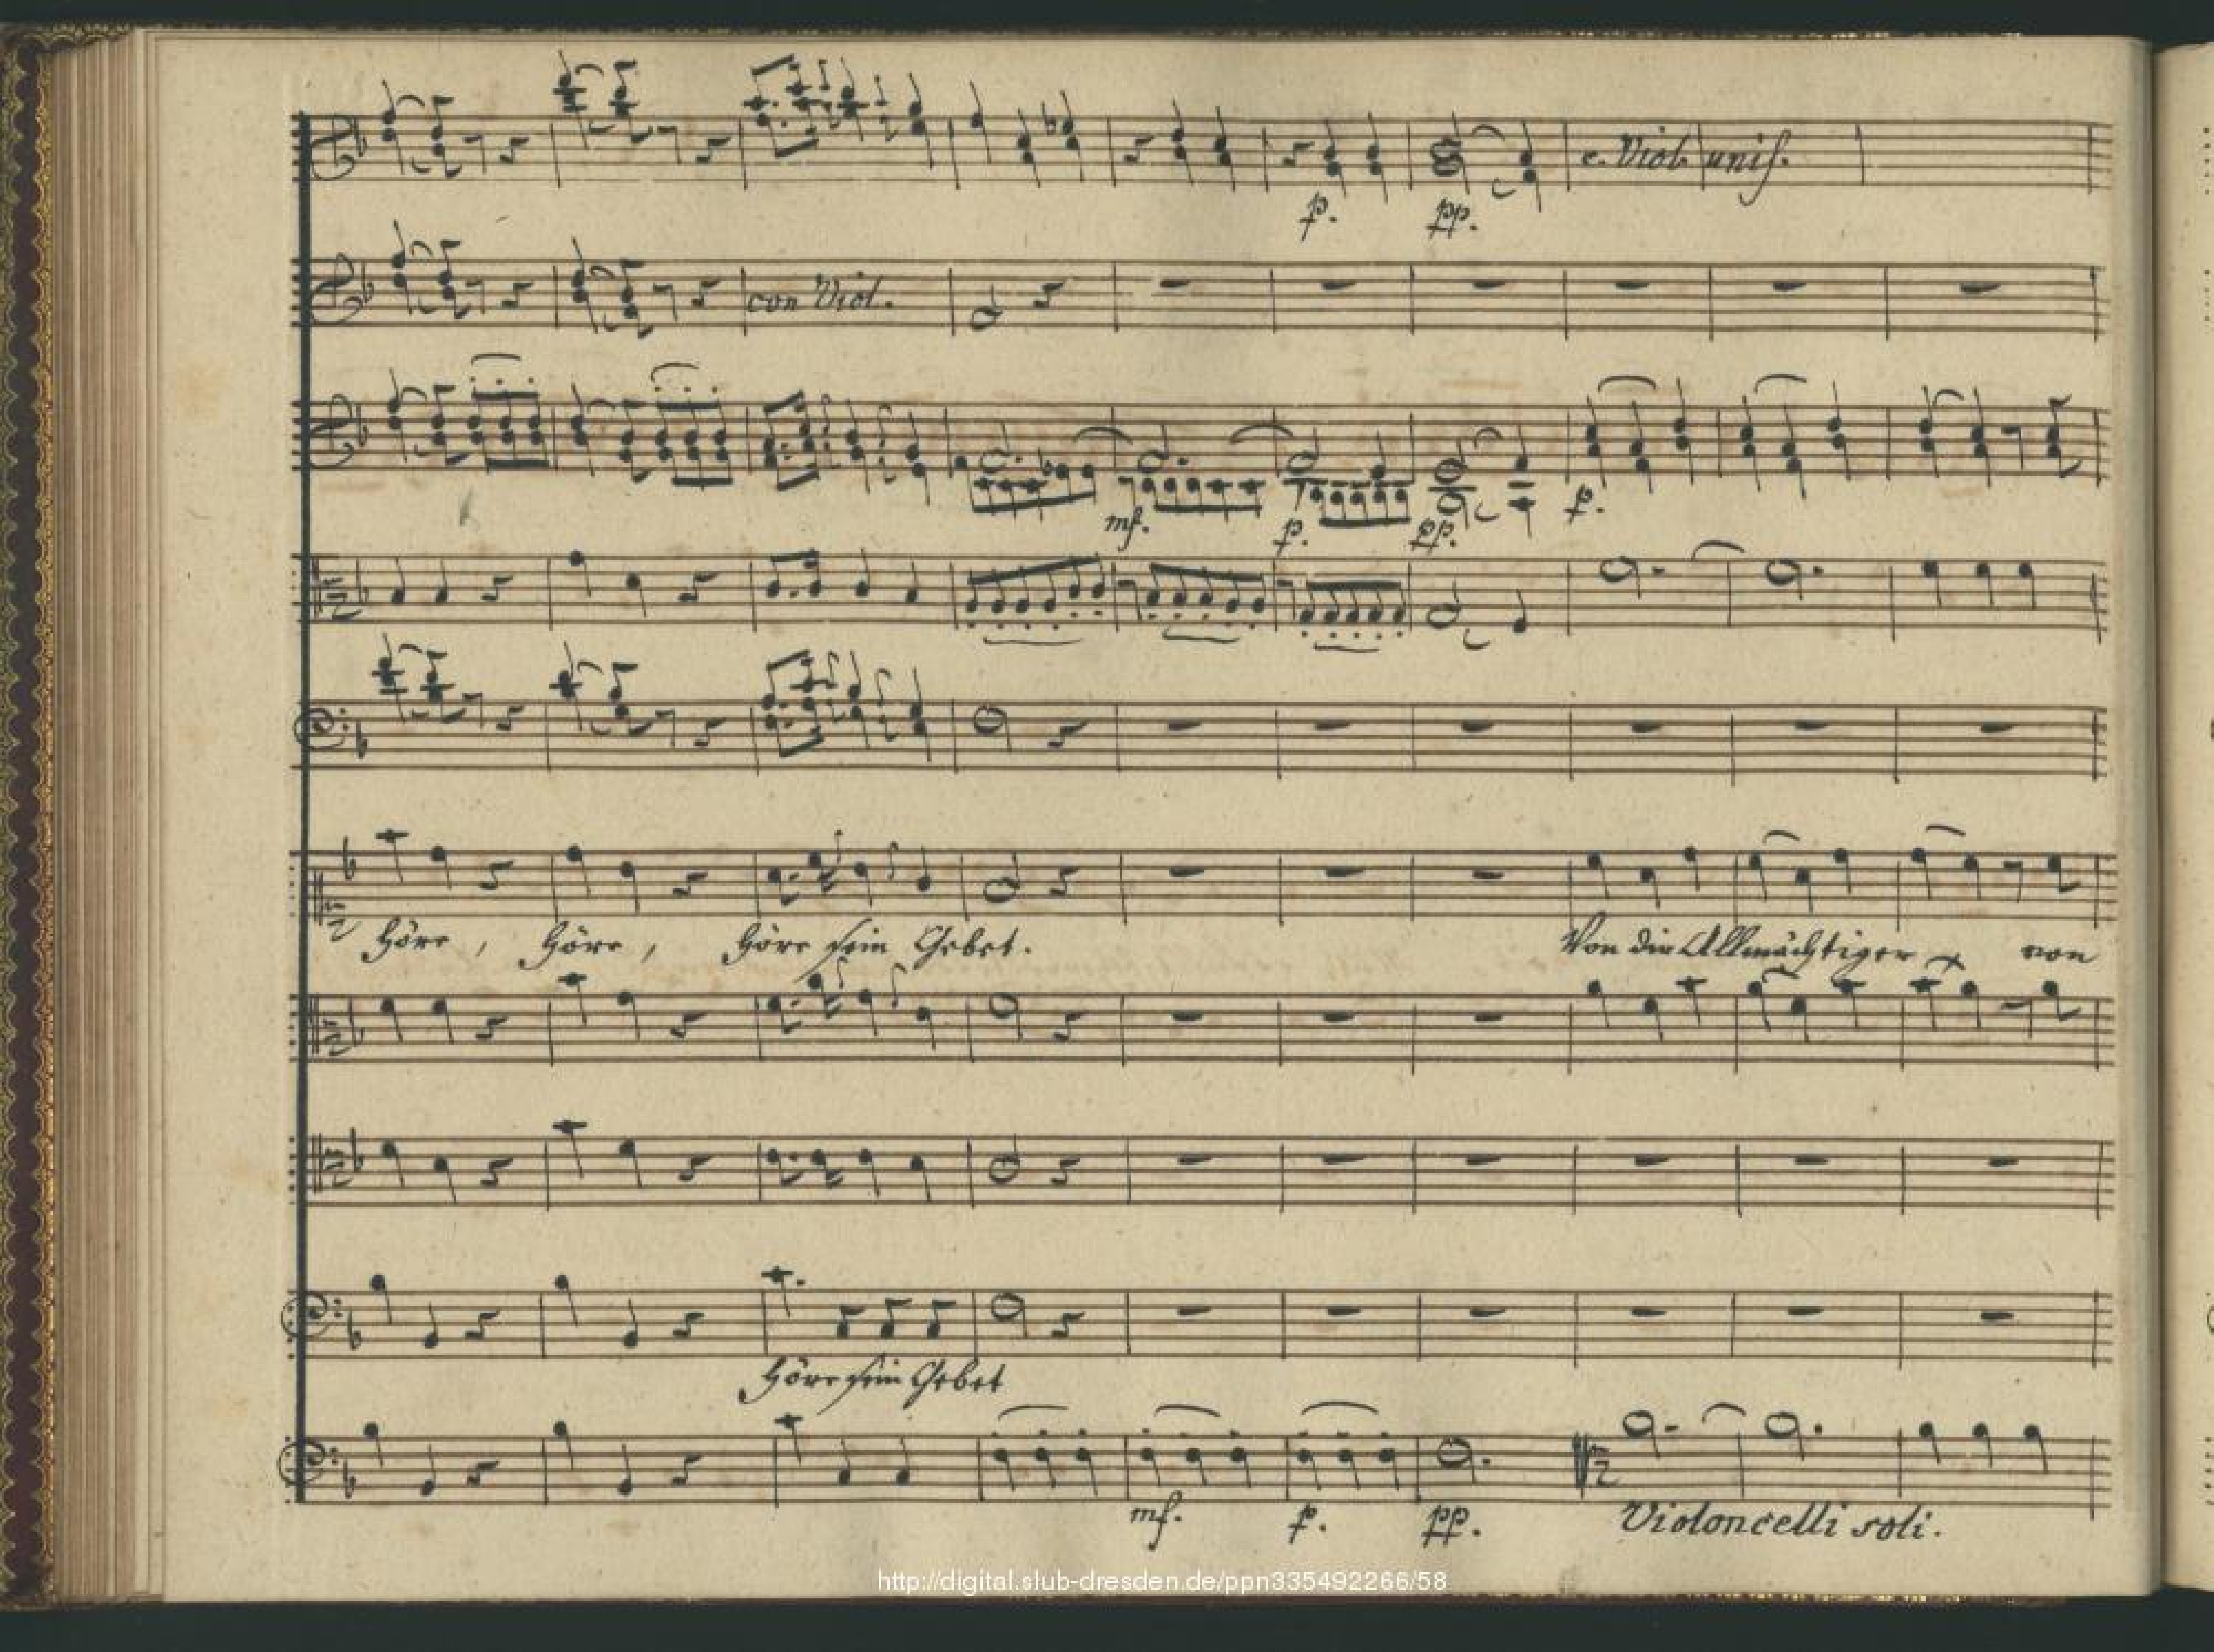 c. Viol. unis.
p. pp.
con Viol.
mf. p. pp. p.
Höre, Höre, Höre sein Gebet. Von dir Allmächtiger von
Höre sein Gebet
mf. p. pp. Violoncelli soli.
http://digital.slub-dresden.de/ppn335492266/58